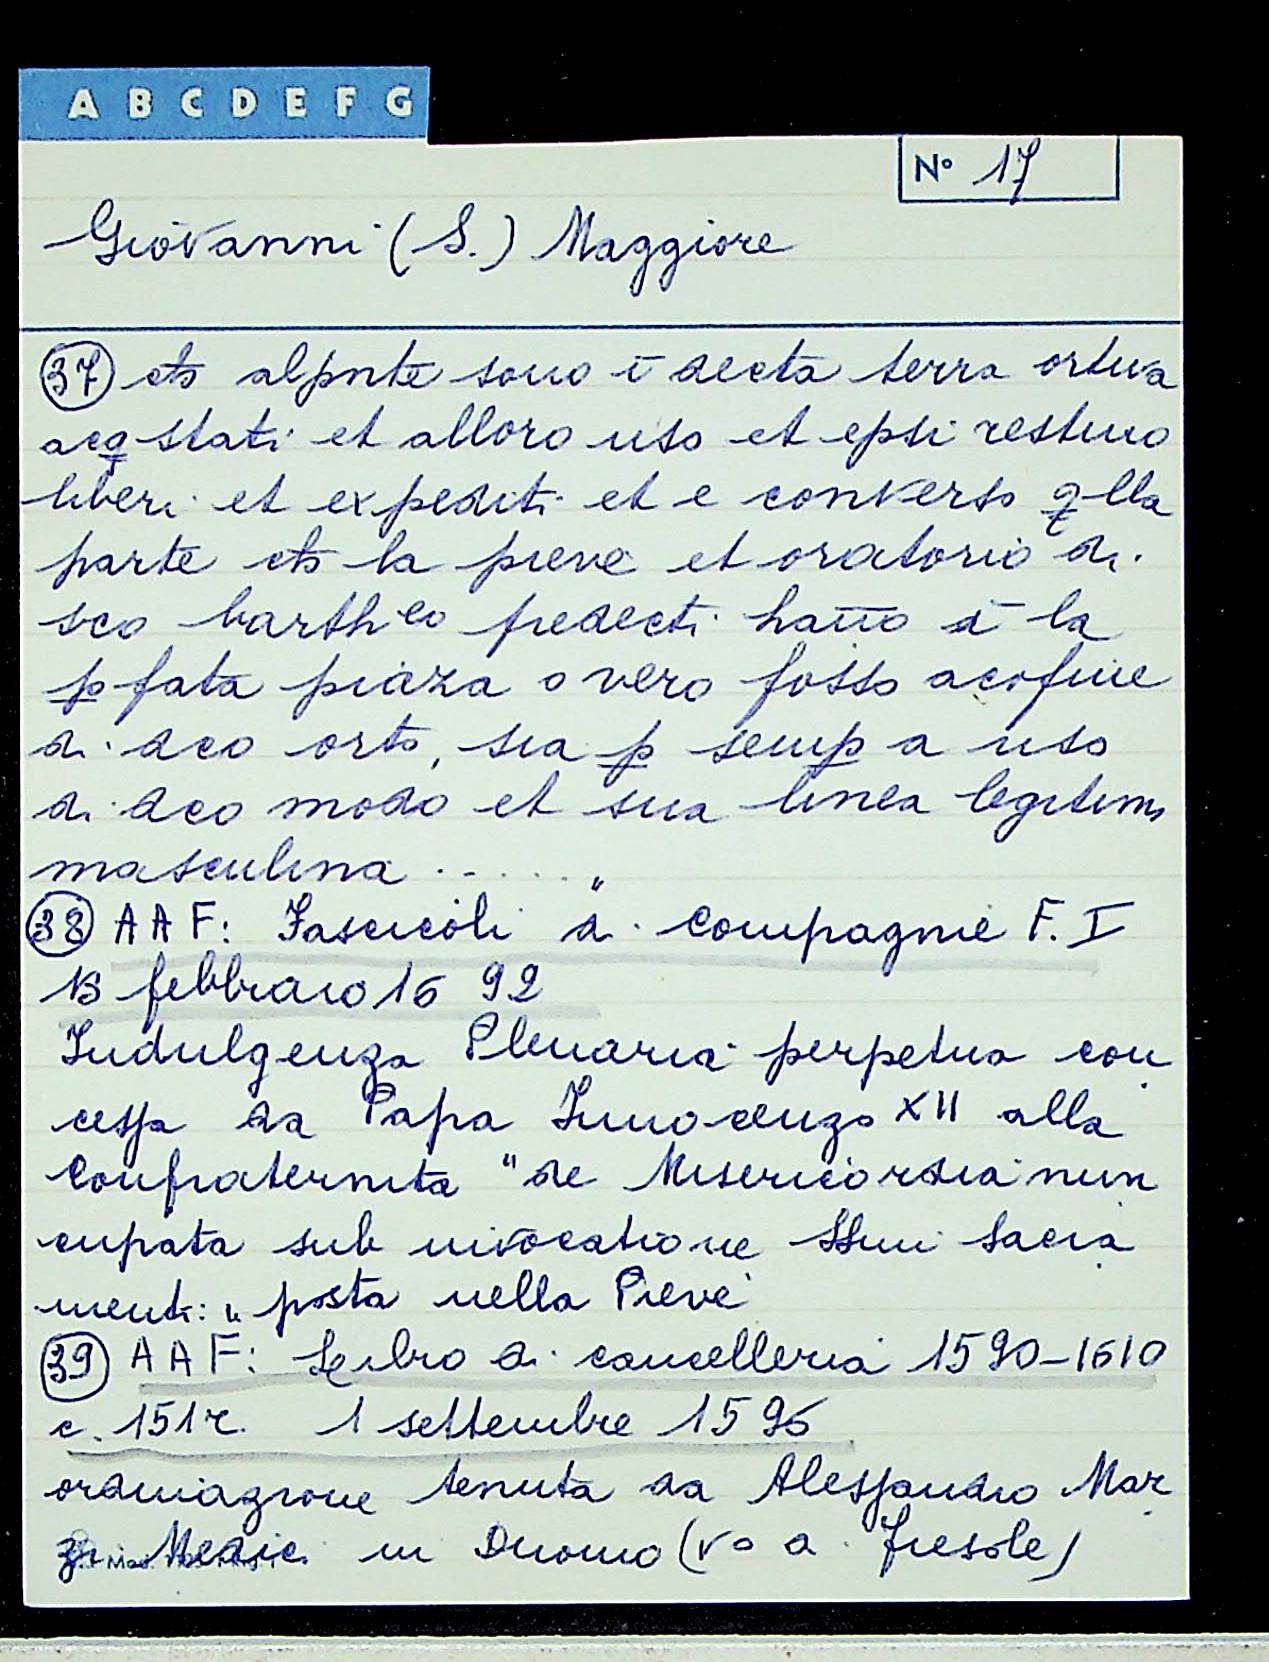 A B C D E F G
N° 17
Giovanni (S.) Maggiore
37 chs alpnte sono ī decta terra ortiva
acq stati et alloro uso et epsi restino
liberi et expediti et e converso qlla
parte chs la pieve et oratorio di
sco bartheo predecti hano ī la
p fata piaza o vero fosso acofine
di dco orto, sia p semp a uso
di dco modo et sua linea legitima
masculina ......"
38 AAF: Fascicoli di Compagnie F. I
13 febbraio 1692
Indulgenza Plenaria perpetua con
cessa da Papa Innocenzo XII alla
Confraternita "de Misericordia nun
cupata sub invocatione SSmi Sacra
menti: " posta nella Pieve
39 AAF: Libro di cancelleria 1590-1610
c. 151r. 1 settembre 1596
ordinazione tenuta da Alessandro Mar
zi Medici in Duomo (vo a Fiesole)